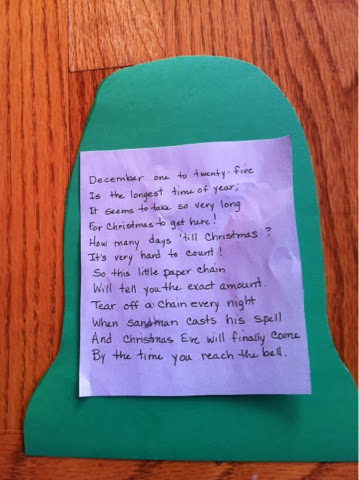 December one to twenty-five
Is the longest time of year,
It seems to take so very long
For Christmas to get here!
How many days 'till Christmas?
It's very hard to count!
So this little paper chain
Will tell you the exact amount.
Tear off a chain every night
When sandman casts his spell
And Christmas Eve will finally come
By the time you reach the bell.